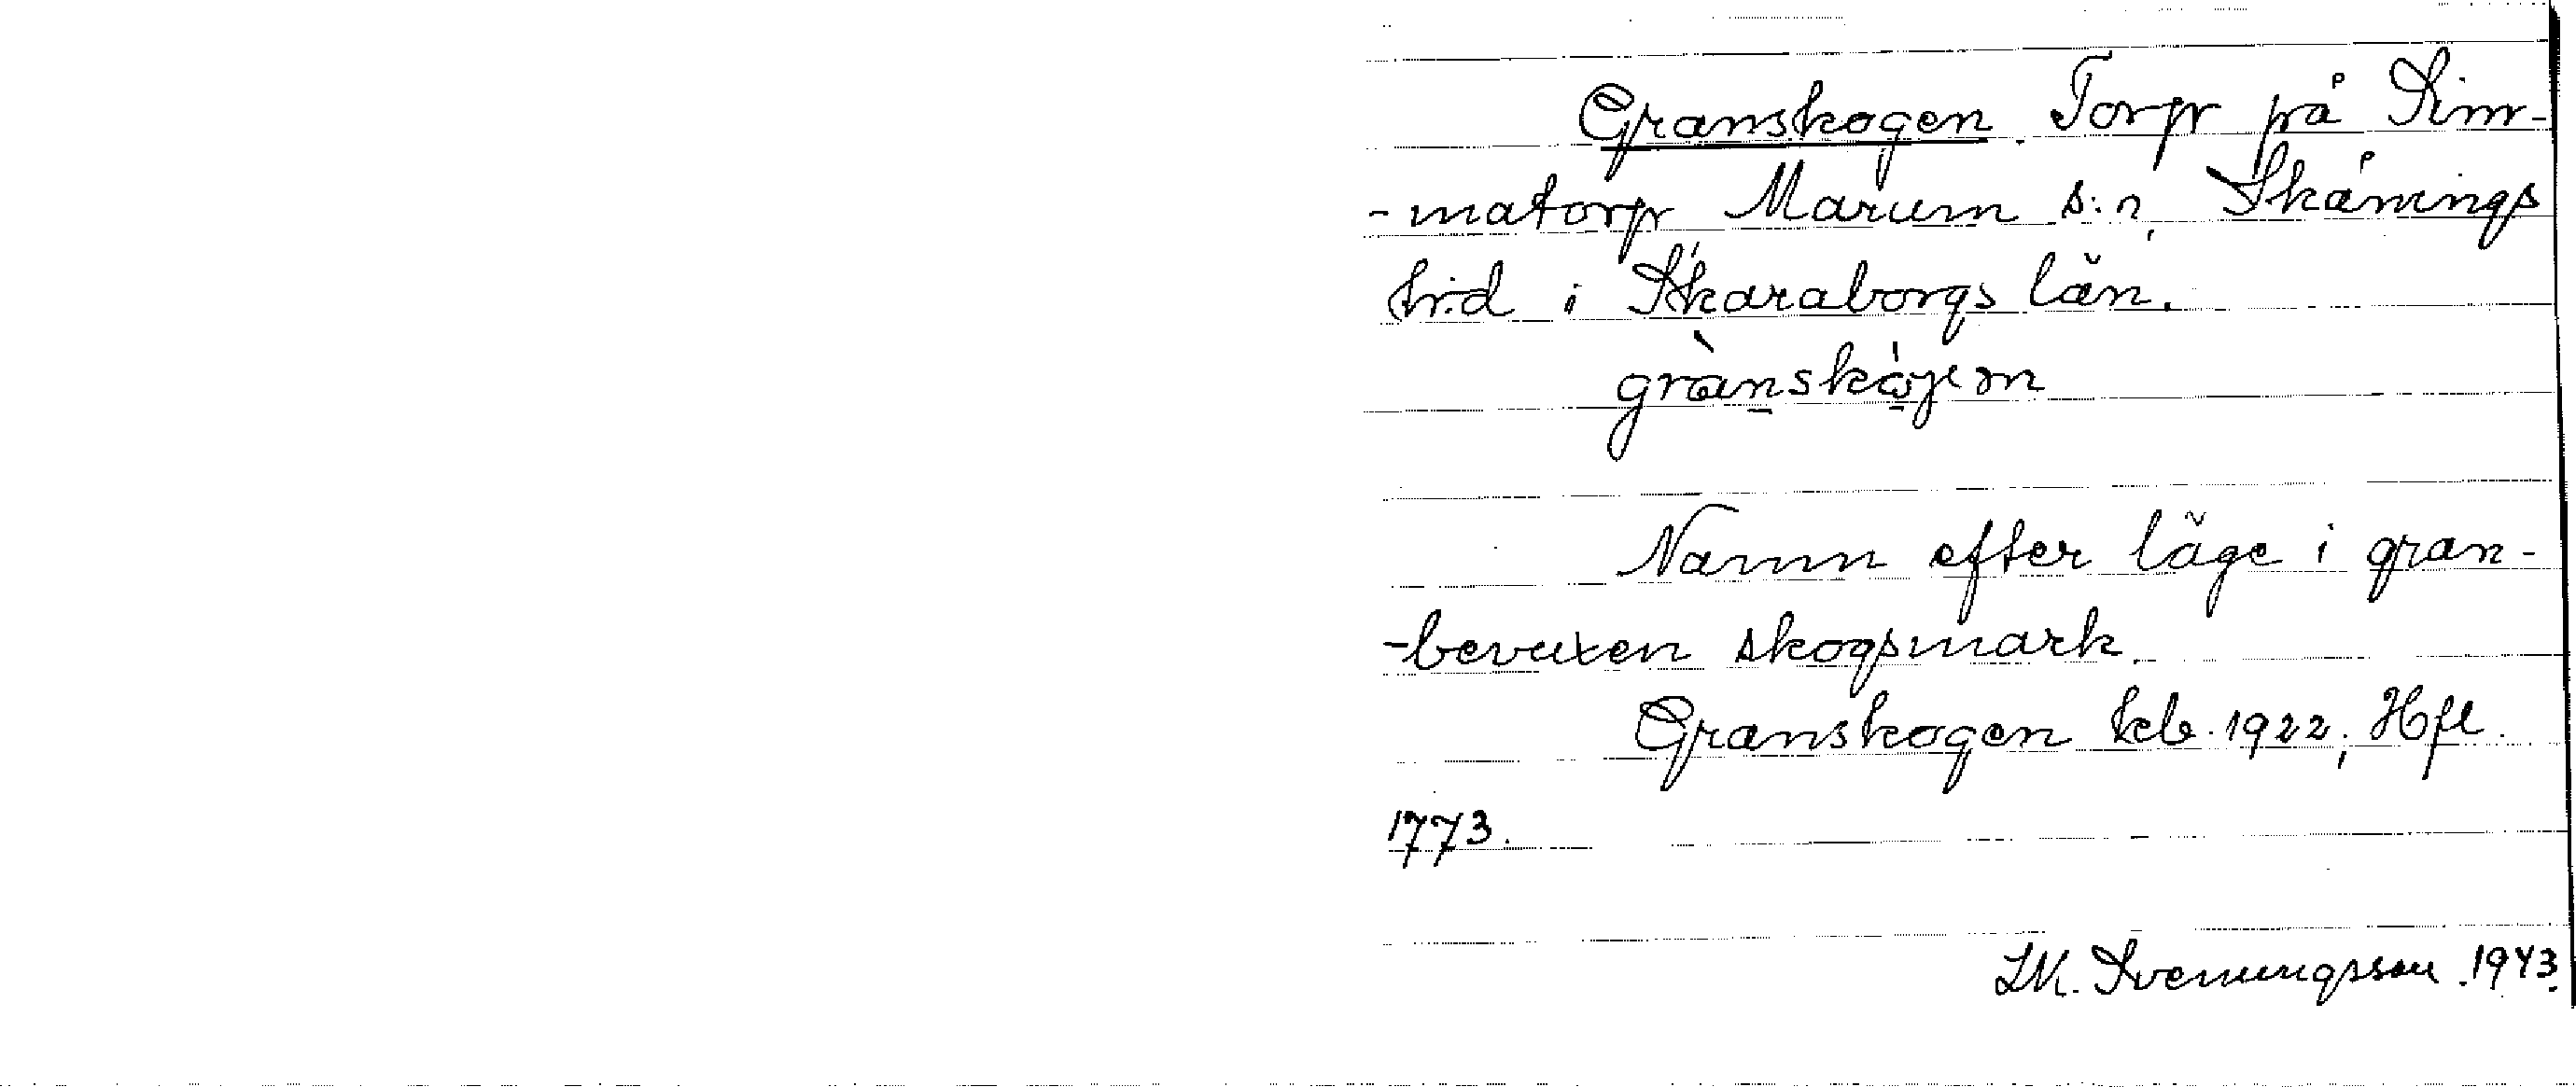 Granskogen. Torp på Sim-
-matorp, Marum s:n, Skånings
h:d i Skaraborgs län.
grànskòjen
Namn efter läge i gran-
-bevuxen skogsmark.
Granskogen kb. 1922; Hfl.
1773.
Svenungsson 1943.